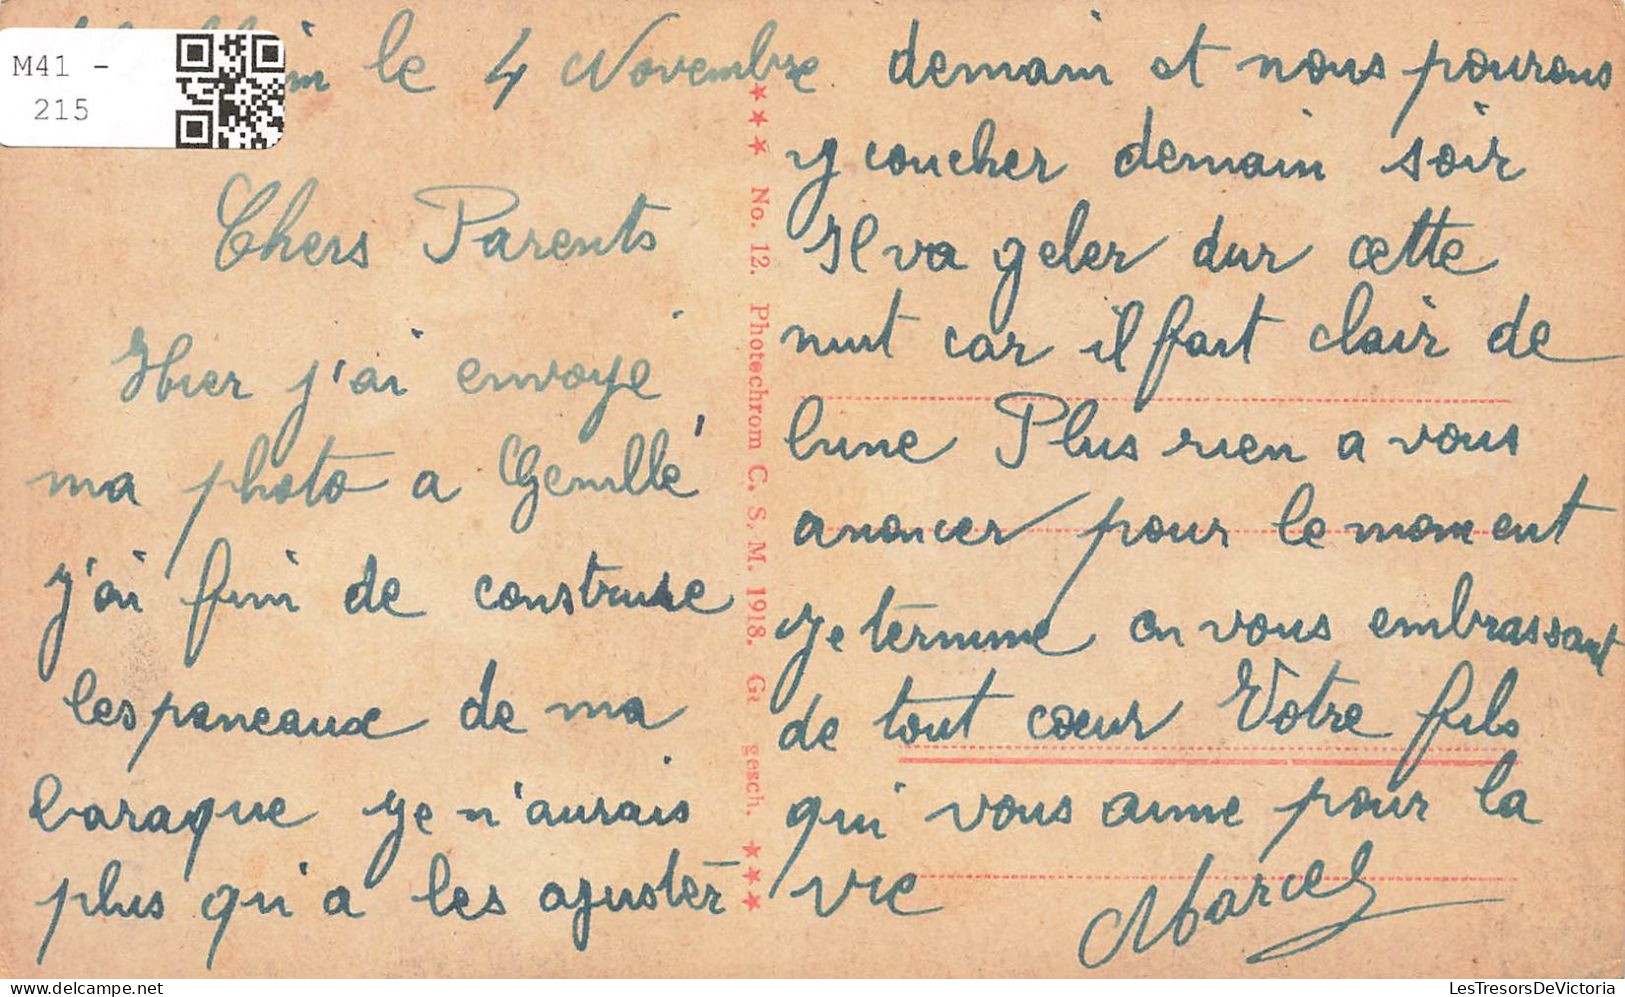 M41 -
215
le 4 Novembre
Chers Parents
Hier j'ai envoyé
ma photo a
j'ai fini de construire
les panneaux de ma
baraque je n'aurais
plus qu'a les ajuster
demain et nous pourons
y coucher demain soir
Il va geler dur cette
nuit car il fait clair de
lune Plus rien a vous
anoncer pour le moment
je termine en vous embrassant
de tout cœur Votre fils
qui vous aime pour la
vie Marcel
★★★ No. 12. Photochrom C. S. M. 1918. gesch. ★★★
LesTresorsDeVictoria